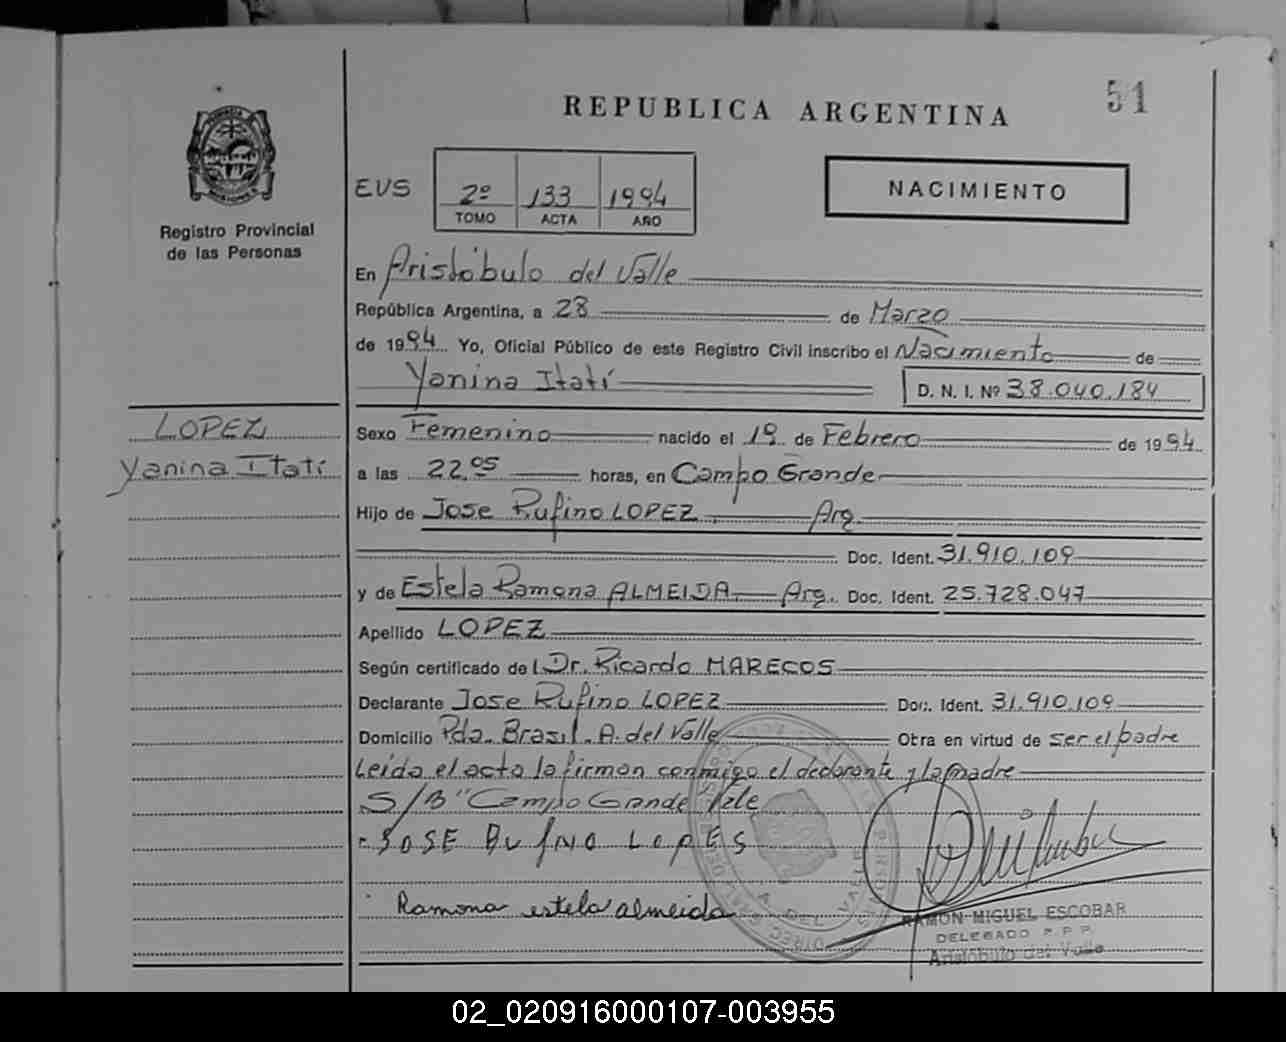 51
REPUBLICA ARGENTINA
NACIMIENTO
EVS
2º 133 1994
TOMO ACTA AÑO
Registro Provincial
de las Personas
En Aristóbulo del Valle
República Argentina, a 28 de Marzo
de 1994. Yo, Oficial Público de este Registro Civil inscribo el Nacimiento de
Yanina Itatí D. N. I. Nº 38.040.184
LOPEZ
Yanina Itatí
Sexo Femenino nacido el 19 de Febrero de 1994
a las 22.05 horas, en Campo Grande
Hijo de Jose Rufino LOPEZ. Arg.
Doc. Ident. 31.910.109
y de Estela Ramona ALMEIDA. Arg. Doc. Ident. 25.728.047
Apellido LOPEZ
Según certificado del Dr. Ricardo MARECOS
Declarante Jose Rufino LOPEZ Doc. Ident. 31.910.109
Domicilio Pda. Brasil. A. del Valle Obra en virtud de ser el padre
Leída el acta la firman conmigo el declarante y la madre
S/B "Campo Grande Vale
JOSE RufiNO LopES
Ramona estela almeida
A. DEL VALLE
RAMON MIGUEL ESCOBAR
DELEGADO R.P.P.
Aristóbulo del Valle
02_020916000107-003955